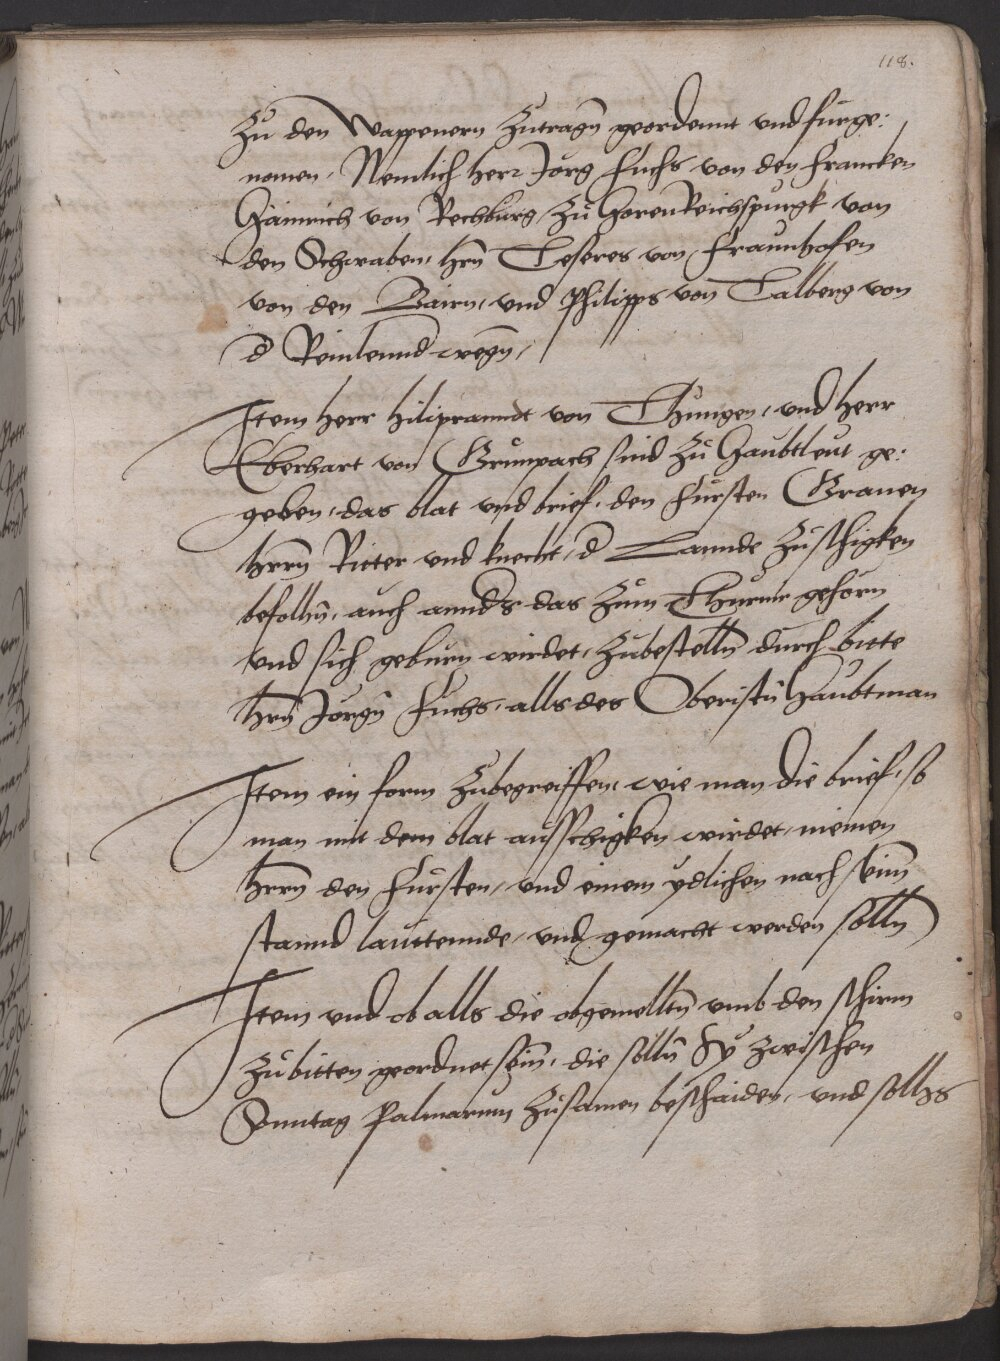 118.
Zu den Wappenern zutragn geordennt vnd furge:
nomen, Nemlich herr Jorg Fuchs von den Francken
Hainrich von Rechburg zu HorenReichspurgk von
den Schwaben, hrn Teseres von Fraunhofen
von den Bairn, vnd Philipps von Talberg von
d Reinlennd wegn,
Item herr hilipranndt von Thungen, vnd herr
Eberhart von Grunpach sind zu Haubtleut ge:
geben, das blat vnd brief, den Fursten Grauen
hrrn Ritter vnd knecht, d Lannde zuschigken
befolhn, auch annds das zum Thurnir gehorn
vnd sich geburn wirdet, zubestelln durch bitte
hrn Jorgn Fuchs, alls des Oberistn Haubtman
Item ein form zubegreiffen, wie man die brief, so
man mit dem blat ausschigken wirdet, meinen
hrrn den Fursten, vnd einem ydlichen nach seinm
stannd lauttennde, vnd gemacht werden solln
Item vnd ob alls die obgemelltn vmb den schirm
zubitten geordnet sein, die solln Sy zwischen
Sunntag Palmarum zusamen beschaiden, vnd sollhs